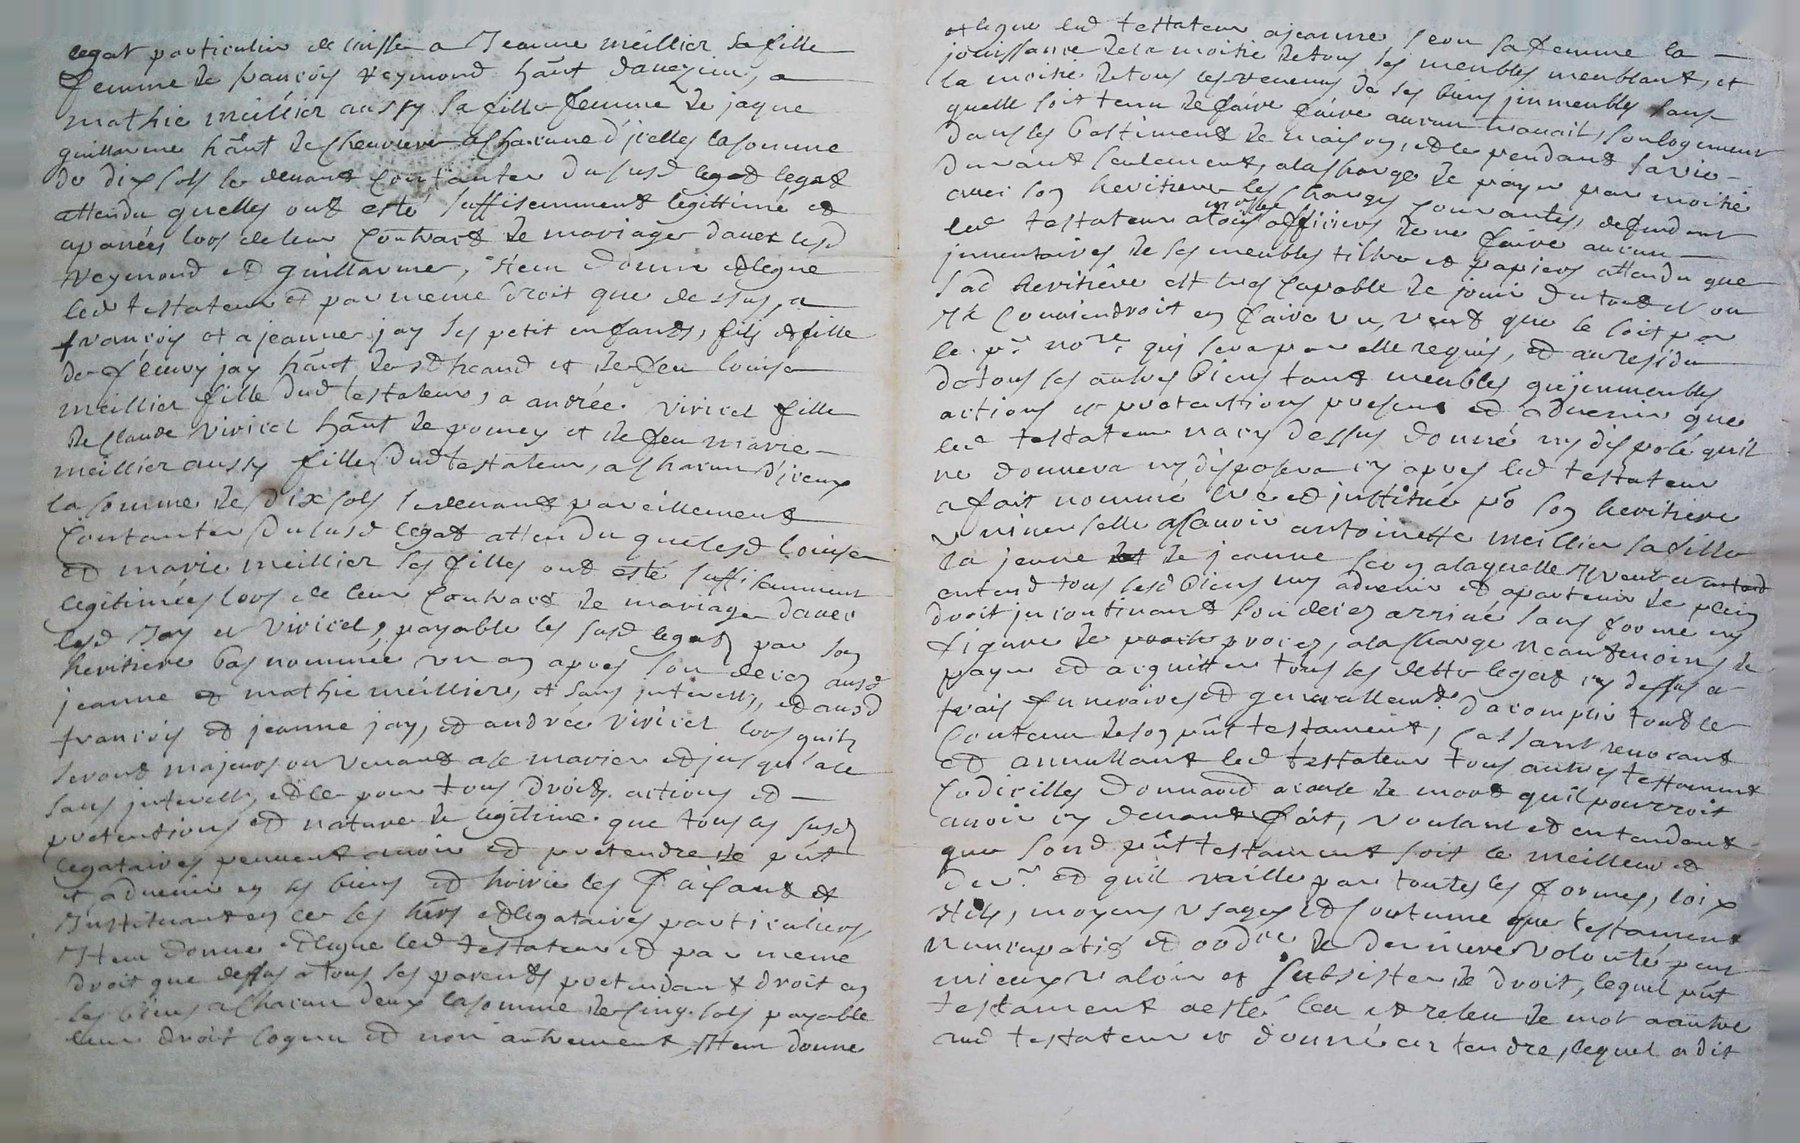 legat particulier delaisse a Jeanne meillier sa fille
femme de françois Reymond hãnt daveizieu, a
mathie meillier aussy sa fille femme de jaque
guillarme hãnt de a chacune d'jcelles la somme
de dix sols le venant contanter du susd legat legat
attendu quelles ont esté suffisemment legittimé et
apanées lors de leur contract de mariage davec lesd
Reymond et guillarme, Item donne et legue
led testateur et par meme droit que dessus, a
françois et a jeanne jay ses petit enfants, fils et fille
de fleury jay hãnt de et de feu louise
meillier fille dud testateur, a andrée vivicel fille
de claude vivicel hãnt de pomey et de feu marie
meillier aussy fille dud testateur, a chacun d'jceux
la somme de dix sols le venant pareillement
contanter du susd legat attendu que lesd louise
et marie meillier ses filles ont esté suffisemment
legitimées lors de leur contract de mariage davec
lesd Jay et vivicel, payable les susd legats par son
heritiere bas nommée un an apres son deces ausd
jeanne et mathie meillier, et sans interests, et ausd
françois et jeanne jay, et andrée vivicel lors quils
seront majeurs ou venant a se marier et jusqu'a ce
sans interests, et ce pour tous droits actions et
pretentions et nature de legitime que tous ces susd
legataires peuvent avoir et pretendre de pñt
et advenir en ses biens et hoirie les faisant et
Instituant en ce ses hers et legataires particuliers
Item donne et legue led testateur et par meme
droit que dessus a tous ses parents pretendant droit en
ses biens a chacun deux la somme de cinq sols payable
leur droit cognu et non autrement, Item donne
et legue led testateur a jeanne seon sa femme la
jouissance de la moitié de tous ses meubles meublant, et
la moitié de tous les revenus de ses biens jmmeubles sans
quelle soit tenu de faire faire aucun travail, son logement
dans les bastiments de maison, et ce pendant sa vie
durant seulement, a la charge de payer par moitié
avec son heritiere les charges courantes, defendant
led testateur a tous officiers de ne faire aucun
jnventaires de ses meubles tiltre et papiers attendu que
sad heritiere est tres capable de jouir du tout et ou
Il conviendroit en faire un, veut que ce soit par
le pr nore qui sera par elle requis, et au residu
de tous ses autres biens tant meubles qu'jmmeubles
actions et pretentions presens et advenir que
led testateur na cy dessus donné ny disposé qu'il
ne donnera ny disposera cy apres led testateur
a fait nommé crée et jnstitué po son heritiere
universelle a scavoir antoinette meillier sa fille
la jeune de jeanne seon a laquelle Il veut et
entend tous lesd biens luy advenir et apartenir de plein
droit jncontinant son deces arrivé sans forme ny
figure de procez, a la charge neantmoins de
payer et acquitter tous ses dette legats cy dessus a
frais funeraires et generallemt d'acomplir tout le
contenu de son pñt testament, cassant revocant
et annullant led testateur tous autres testament
codicilles donnaõn a cause de mort quil pourroit
avoir cy devant fait, voulant et entendant
que sond pñt testament soit le meilleur et
der et quil vaille par toutes les formes, loix
stils, moyens usages et coutume que testament
nuncupatif et ordce de derniere volonté peut
mieux valoir et subsister de droit, lequel pñt
testament a esté leu et releu de mot a autre
aud testateur et donné a entendre, lequel a dit